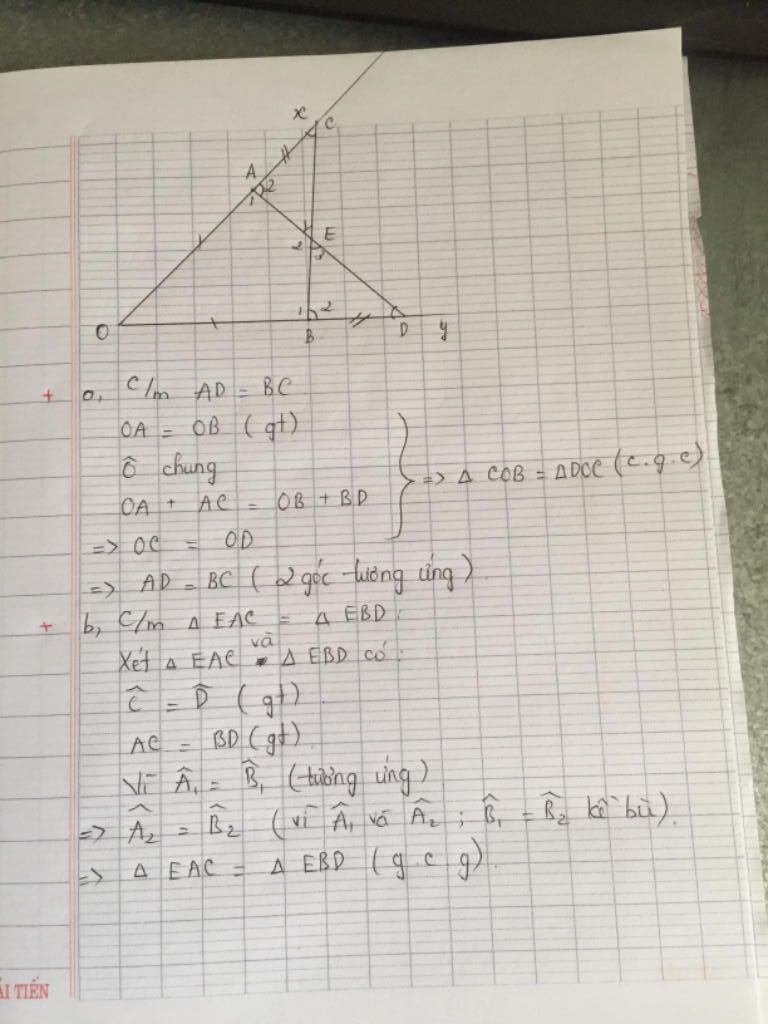 x
C
A
2
1
2
E
3
1
2
O
B
D
y
+ a, C/m AD = BC
OA = OB (gt)
Ô chung
OA + AC = OB + BD
=> OC = OD
} => Δ COB = ΔDOC (c.g.c)
=> AD = BC ( 2 góc tương ứng)
+ b, C/m Δ EAC = Δ EBD.
Xét Δ EAC và Δ EBD có:
Ĉ = D̂ (gt)
AC = BD (gt)
Vì Â₁ = B̂₁ (tương ứng)
=> Â₂ = B̂₂ (vì Â₁ và Â₂ ; B̂₁ = B̂₂ kề bù).
=> Δ EAC = Δ EBD (g.c.g).
ẢI TIẾN